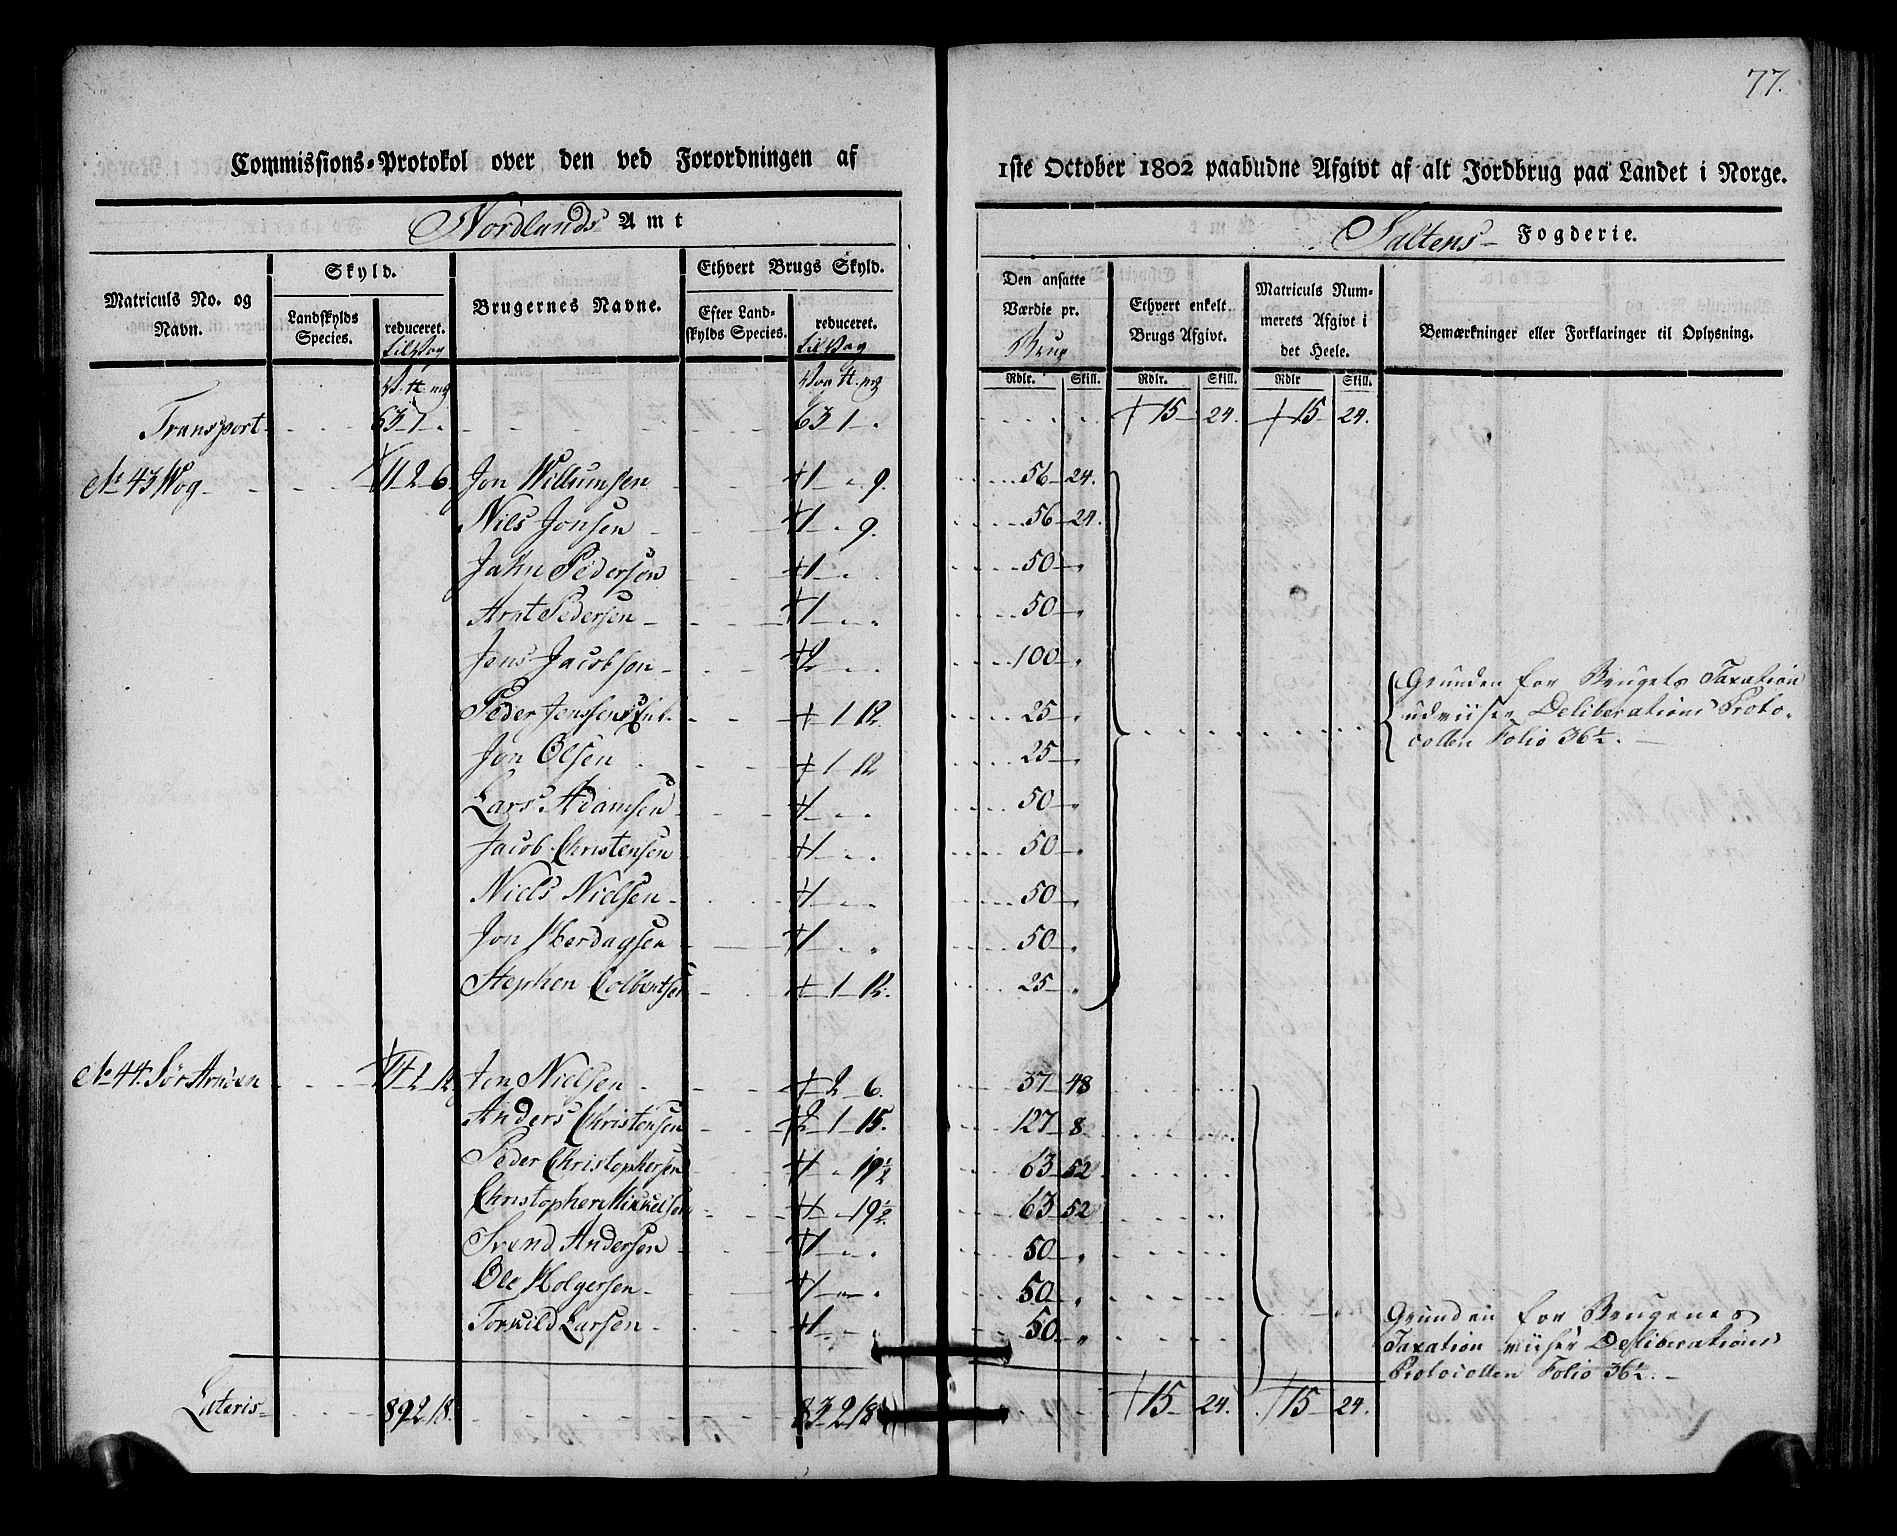 77.
Commissions-Protokol over den ved Forordningen af 1ste October 1802 paabudne Afgivt af alt Jordbrug paa Landet i Norge.
Nordlands Amt
Saltens Fogderie.
Matriculs No. og Navn.
Skyld.
Landskylds Species.
reduceret.
Brugernes Navne.
Ethvert Brugs Skyld.
Efter Landskylds Species.
reduceret.
Den ansatte Værdie pr. Brug
Ethvert enkelt Brugs Afgivt.
Matriculs Nummerets Afgivt i det Heele.
Bemærkninger eller Forklaringer til Oplysning.
Rdlr. Skill. Rdlr. Skill. Rdlr Skill.
Transport 63 1 " 63 1 " 15 24 15 24
No 43 Wog 11 2 6 Jon Willumsen 1 " 9 56 24
Nils Jonsen 1 " 9 56 24
Jahn Pedersen 1 " " 50 "
Arnt Pedersen 1 " " 50 "
Jens Jacobsen 2 " " 100 "
Peder Jenssens 1 12 25 "
Jon Olsen 1 12 25 "
Lars Adamsen 1 " " 50 "
Jacob Christensen 1 " " 50 "
Niels Nielsen 1 " " 50 "
Jon Herdagsen 1 " " 50 "
Stephen Colbentsen 1 12 25 "
Grunden for Brugets Taxation
udviiser Deliberations Proto-
collen Folio 36½.
No 44 Sør Arnøen 14 2 12 Jon Nielsen 2 6 37 48
Anders Christensen 2 1 15 127 8
Peder Christophersen 1 " 19½ 63 52
Christopher Mikkelsen 1 " 19½ 63 52
Svend Andersen 1 " " 50 "
Ole Holgersen 1 " " 50 "
Torkild Larsen 1 " " 50 "
Grunden for Brugenes
Taxation viiser Deliberations
Protocollen Folio 36½.
Lateris 89 2 18 83 2 18 15 24 15 24